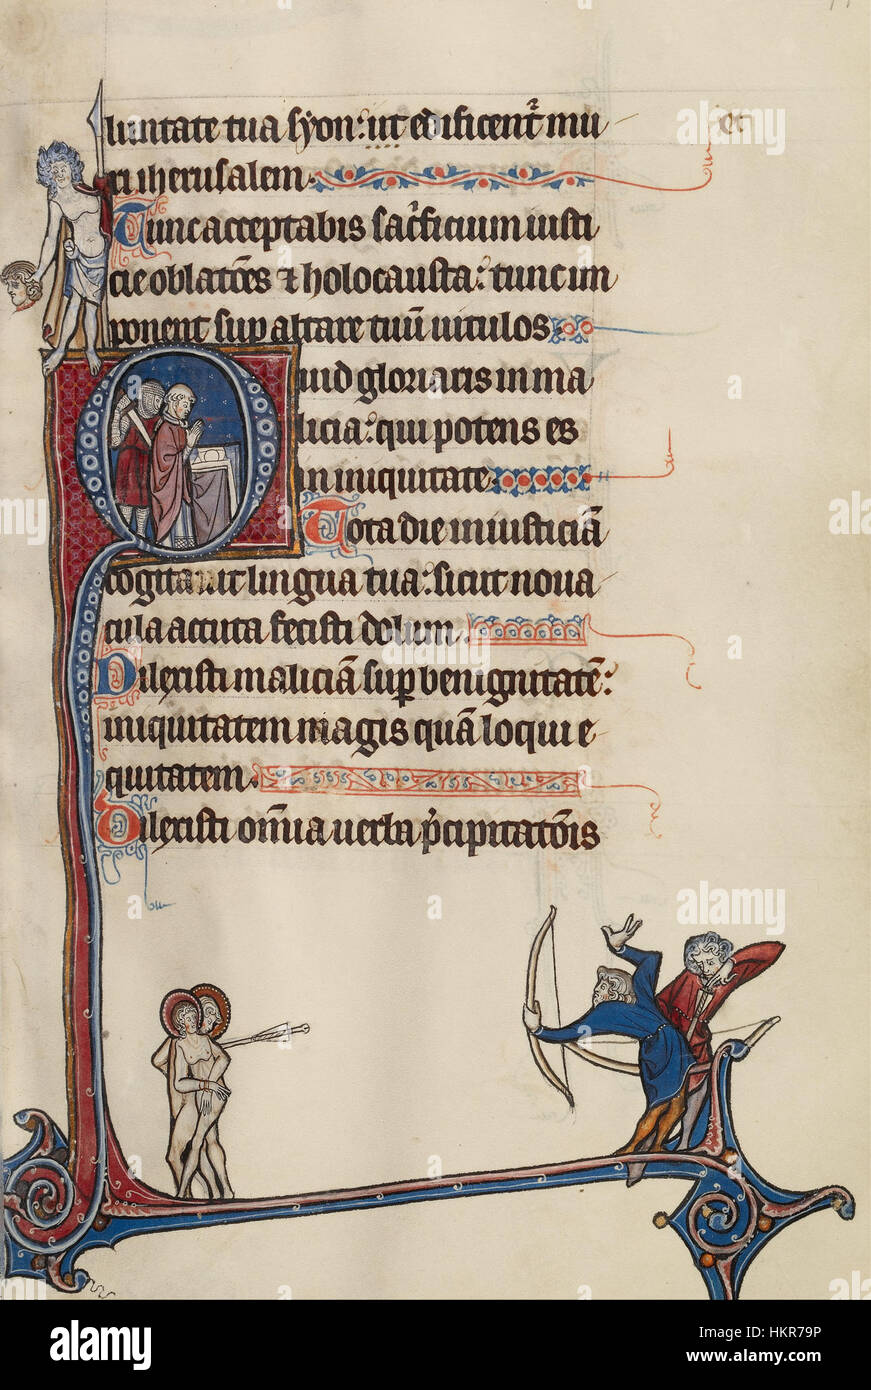 luntate tua syon: ut edificent᷑ mu
et
ri iherusalem.
Tunc acceptabis sac̾ficium iusti
cie oblatōes ⁊ holocausta: tunc im
ponent sup altare tuū uitulos
Quid gloriaris in ma
licia: qui potens es
in iniquitate.
Tota die iniusticiā
cogitauit lingua tua: sicut noua
cula acuta fecisti dolum.
Dilexisti maliciā sup benignitatē:
iniquitatem magis quā loqui e
quitatem.
Dilexisti om̄ia uerba p̄cipitatōis
alamy
alamy stock photo
HKR79P
www.alamy.com